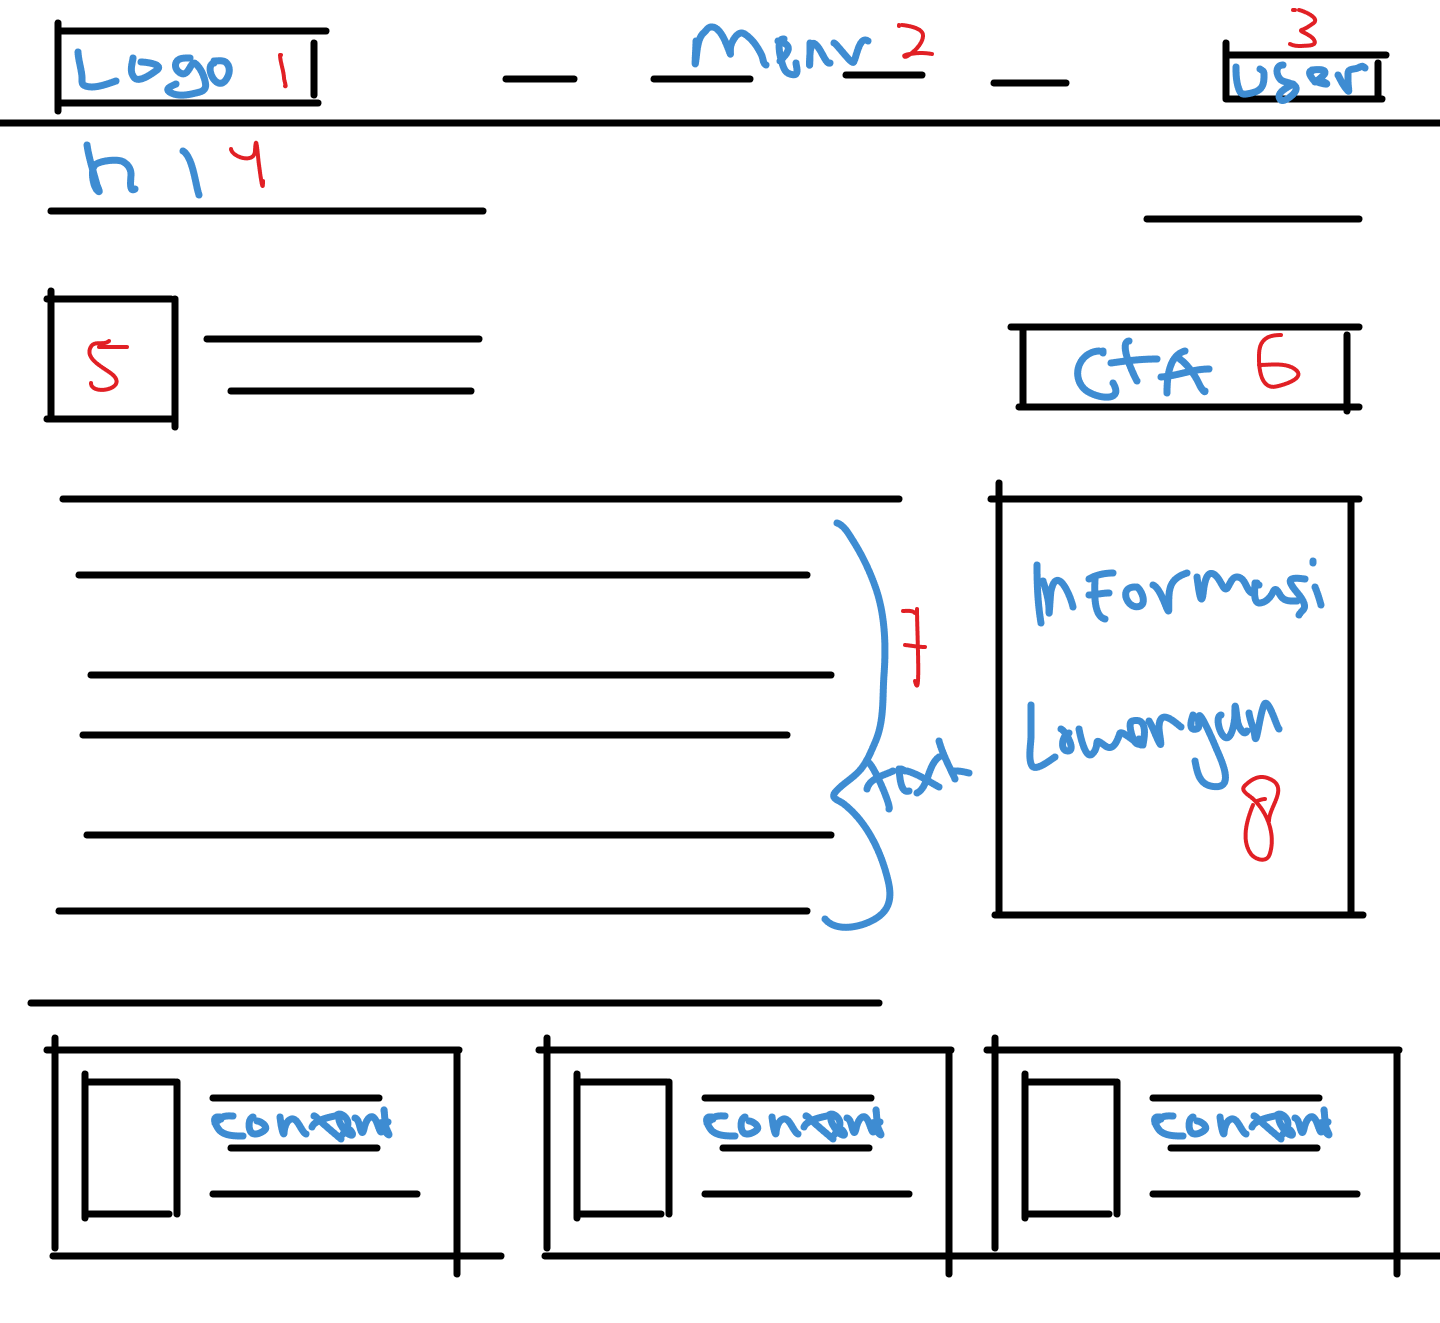 Logo 1
Menu 2
3
User
h1 4
5
CTA 6
7
text
Informasi
Lowongan
8
content
content
content